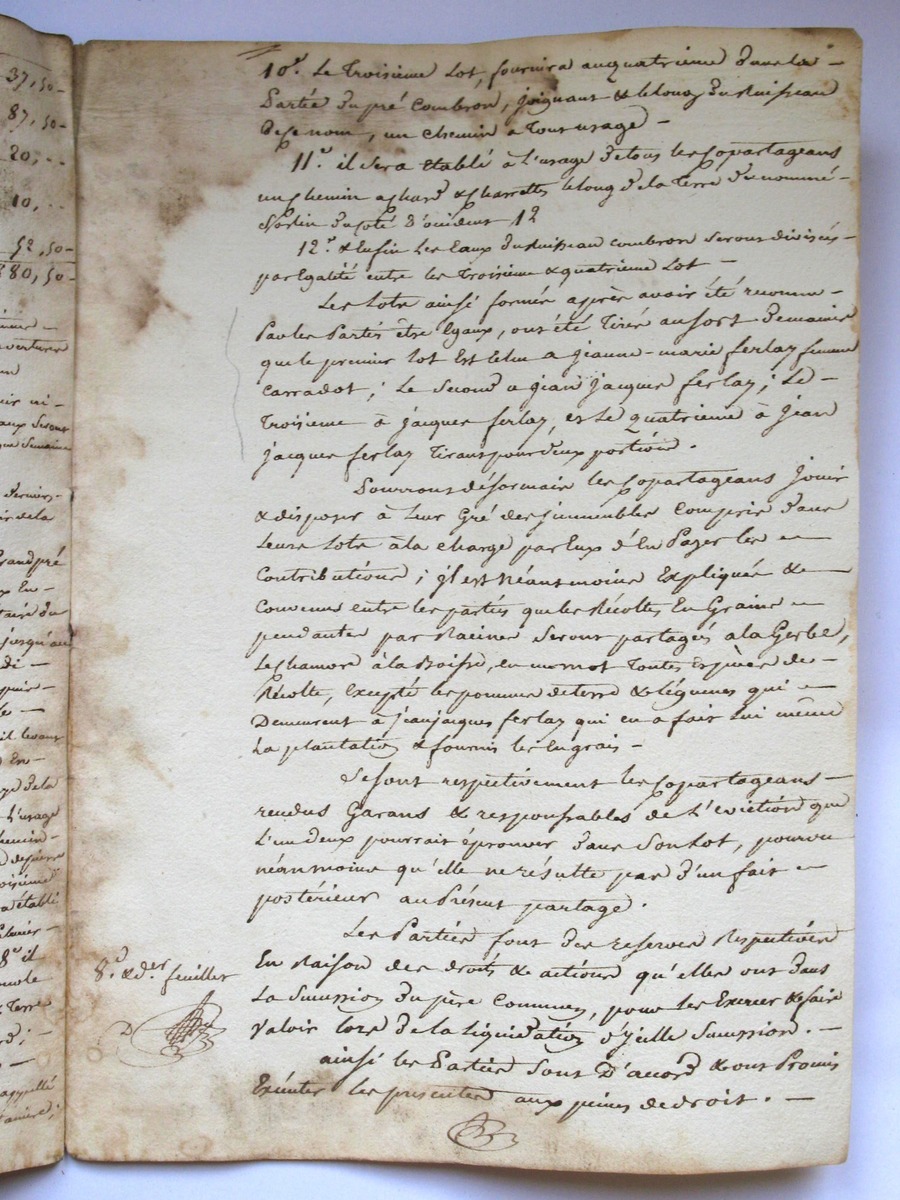 37,50-
87,50-
20,..
10,..
52,50-
880,50-
verture
aux seront
que semaine
dernier-
Grand pré
jusqu'au
il levant
L'usage
chemin-
8e il
Terre
appellé
10e. Le Troisieme Lot, fournira au quatrieme dans la -
Partie du pré Combron, joignant & le long du Ruisseau
de ce nom, un chemin a tour usage -
11e. il sera établi à l'usage de tous les Copartageans
un chemin a char & charrettes le long de la Terre du nommé -
du coté d'occident 12
12e. & Enfin Les Eaux du Ruisseau combron seront divisées -
par Egalité entre les Troisieme & quatrieme Lot -
Les Lots ainsi formés après avoir été reconnus -
Par les Parties être Egaux, ont été Tirés au sort de maniere
que le premier Lot est échu a jeanne-marie ferlay femme
carradot ; Le second a jean jacques ferlay ; Le -
Troisieme à jacques ferlay, et Le quatrieme à jean
jacques ferlay Tirant pour deux portions.
Pourront désormais les Copartageans jouir
& disposer à Leur Gré des jmmeubles Compris dans
Leurs Lots à la charge par Eux d'En Payer les -
Contributions ; jl est Néanmoins Expliqué & -
Convenu entre les parties que les Récoltes En Grains -
pendantes par Racines Seront partagés a la Gerbe,
Le chanvre à la , en un mot Toutes Espèces de -
Récolte, Excepté les pommes de terre & légumes qui -
Demeurent à jean jacques ferlay qui en a fait Lui même
La plantation & fournis les Engrais -
Se sont respectivement les Copartageans -
rendus Garans & responsables de L'eviction que
L'un deux pourrait éprouver dans son Lot, pourvu
néanmoins qu'elle ne résulte pas d'un fait -
postérieur au Présent partage.
Les Parties font des reserves Respectives
En Raison des droits & actions qu'elles ont dans
La Succession du père Commun, pour les Exercer & faire
Valoir lors de la Liquidation d'jcelle Succession. -
ainsi les Parties Sont D'accord & ont Promis
Exécuter les presentes aux peines de droit. -
8e. & der. feuillet